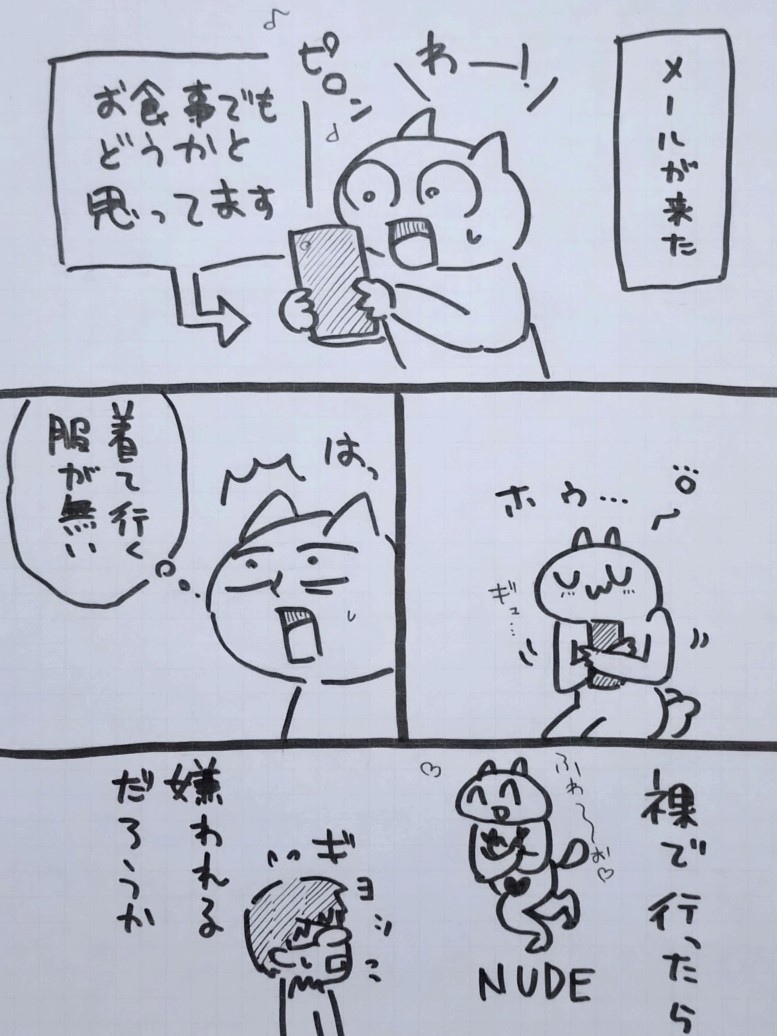 メールが来た
わー!
ピロン
お食事でも
どうかと
思ってます
ホゥ…
ギュ…
はっ
着て行く
服が無い
裸で行ったら
ふわ〜〜お♡
NUDE
ギョッ
嫌われる
だろうか